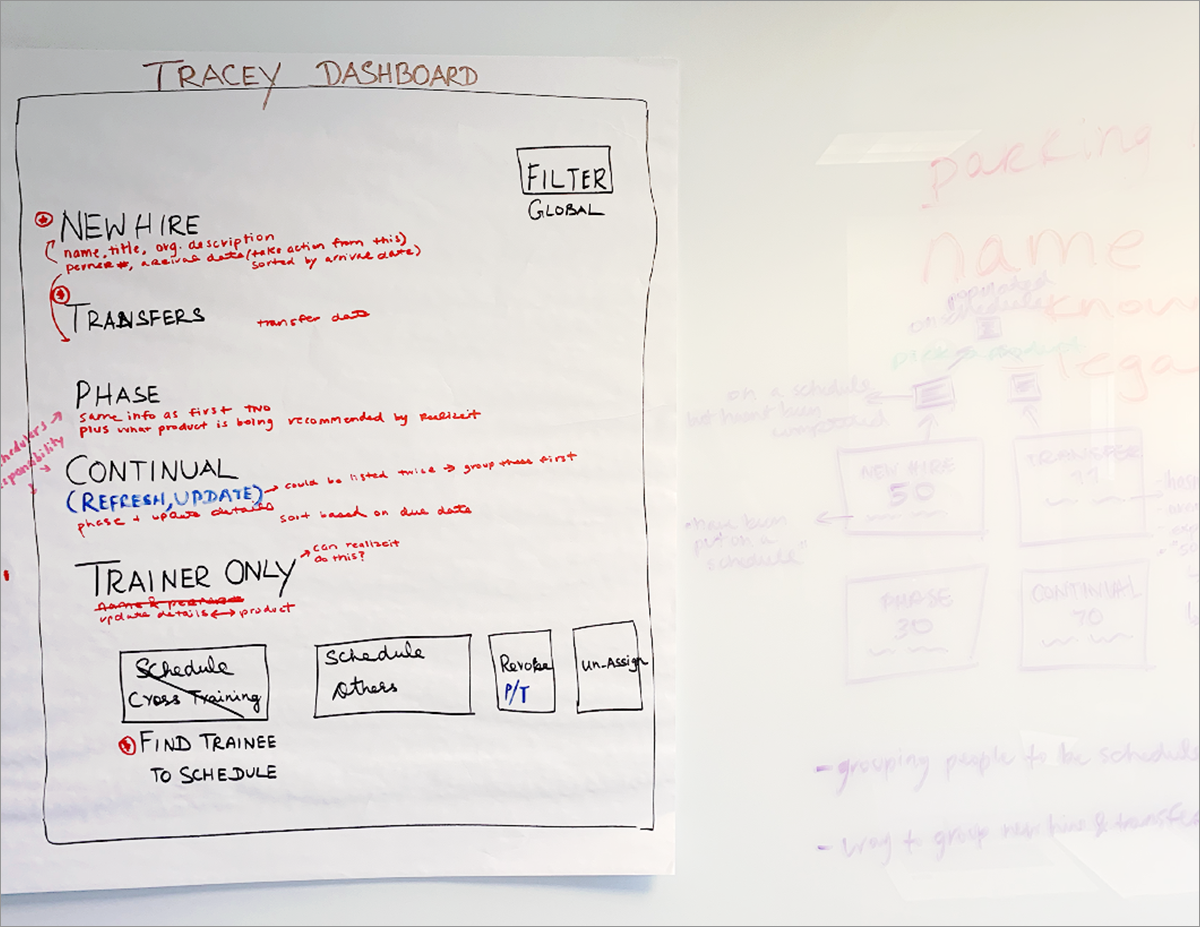 TRACEY DASHBOARD
FILTER
GLOBAL
NEW HIRE
name, title, org. description
perner #, arrival date (take action from this)
sorted by arrival date)
TRANSFERS
transfer date
PHASE
same info as first two
plus what product is being recommended by Realizeit
CONTINUAL
(REFRESH, UPDATE)
could be listed twice → group these first
phase + update details
sort based on due date
TRAINER ONLY
can realizeit
do this?
name & perner #
update details ↔ product
Schedule
Cross Training
Schedule
Others
Revoke
P/T
Un-Assign
FIND TRAINEE
TO SCHEDULE
parking
name
know
lega
populated
on schedule
on a schedule
but hasn't been
NEW HIRE
50
TRANSFER
- have been
put on a
schedule"
PHASE
30
CONTINUAL
70
- grouping people to be schedule
- way to group new hire & transfer